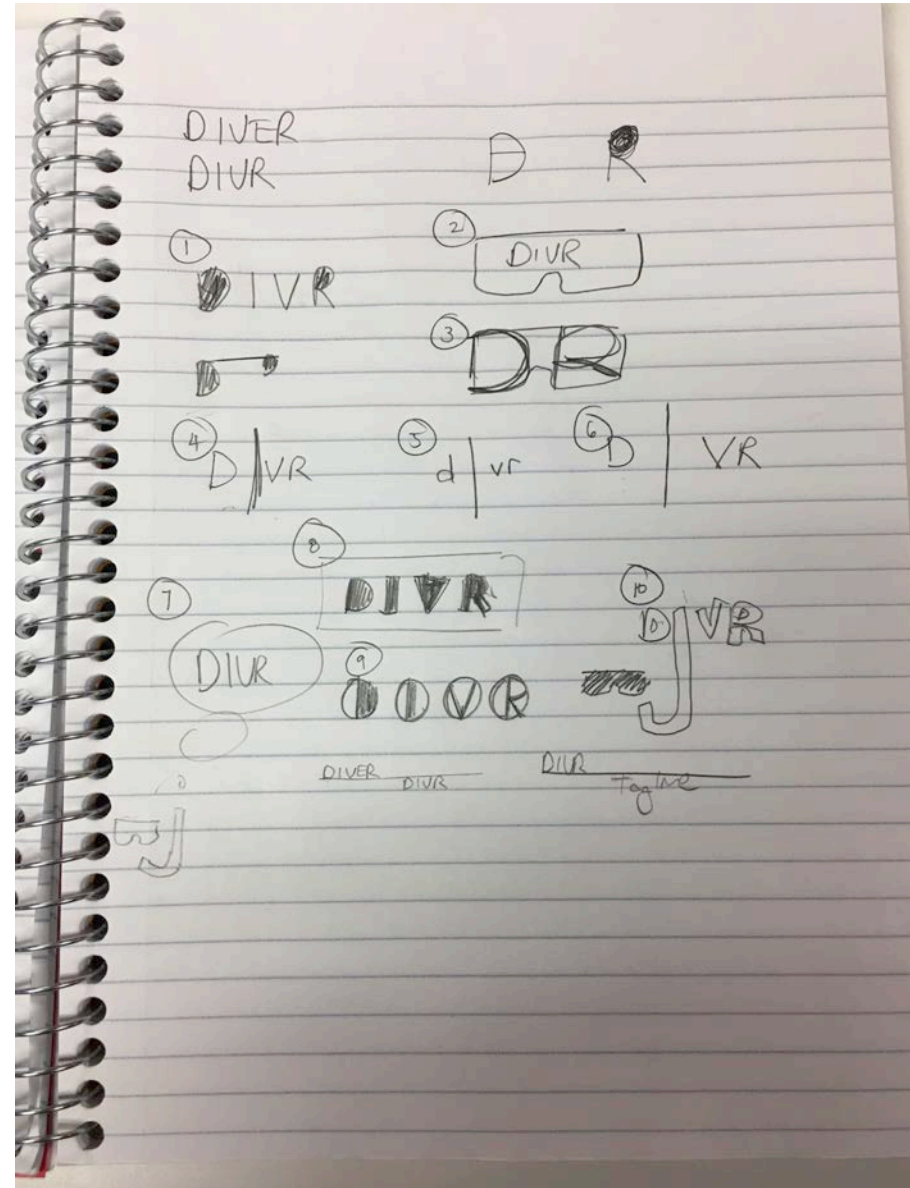 DIVER
DIVR
D R
①
DIVR
②
DIVR
③
DR
④
D|VR
⑤
d|vr
⑥
D|VR
⑦
DIVR
⑧
DIVR
⑨
DIVR
⑩
D VR
DIVER
DIVR
DIVR
Tagline